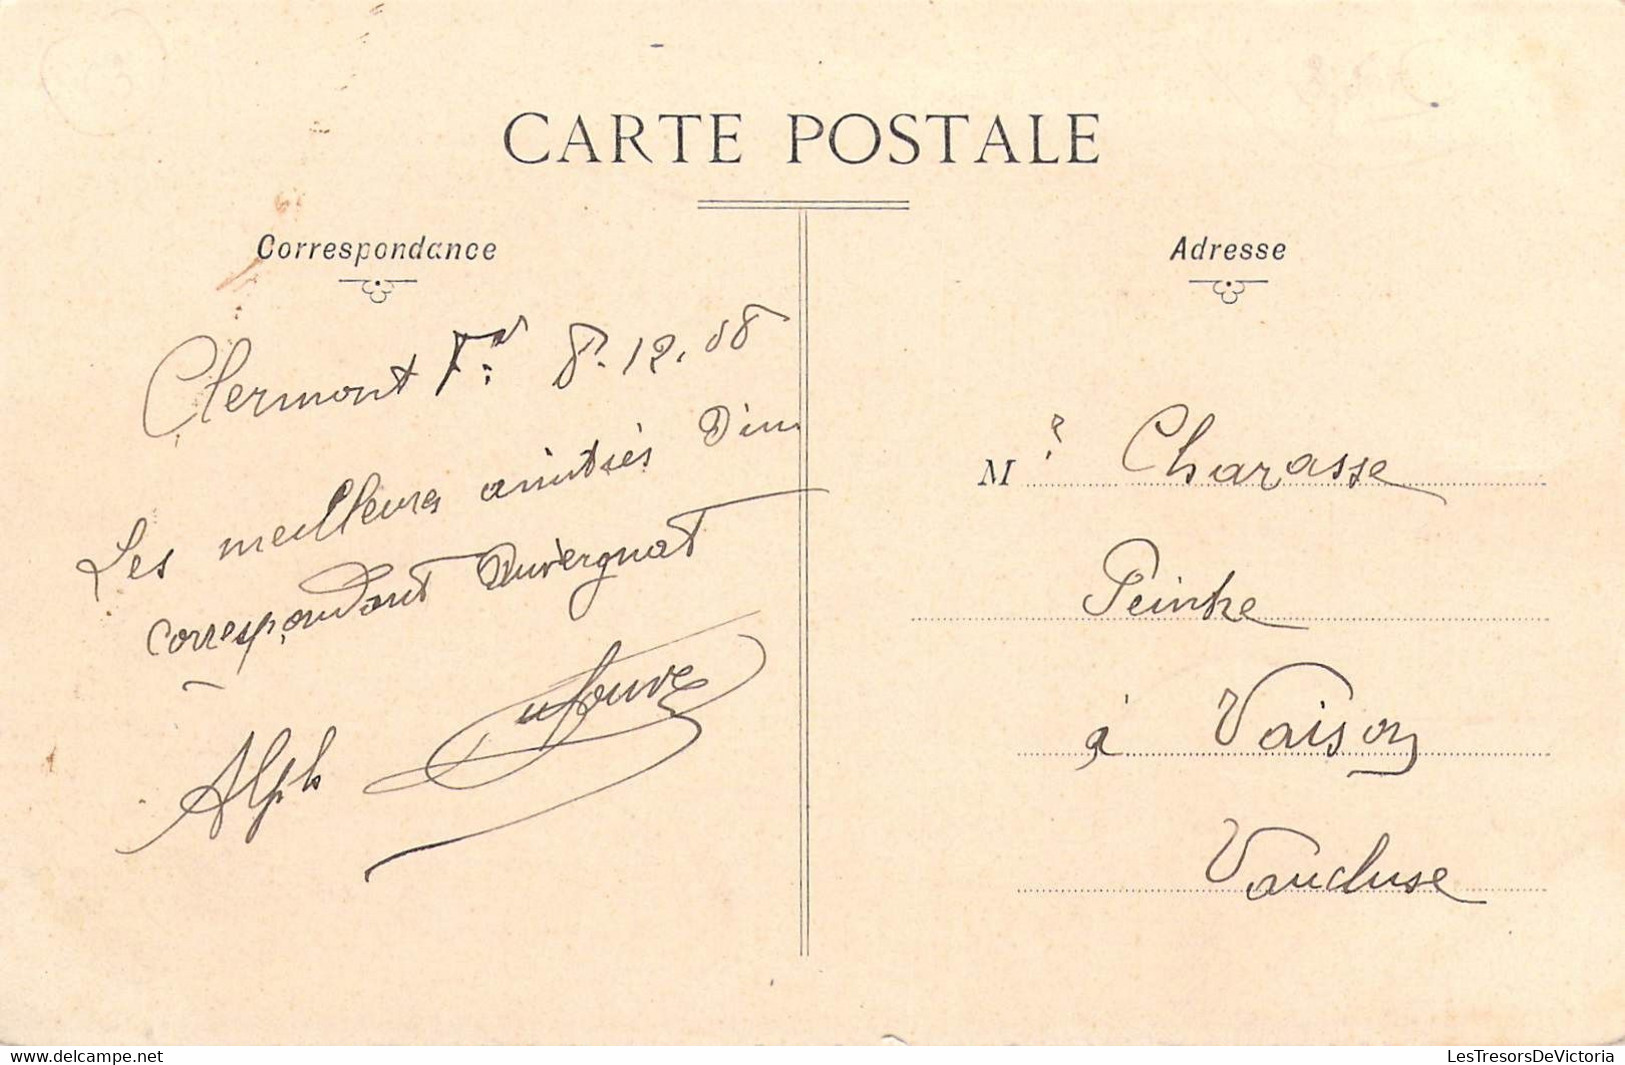 CARTE POSTALE
Correspondance
Clermont Fd 8.12.08
Les meilleurs amitiés d'un
correspondant Auvergnat
Alph
Adresse
Mr Charasse
Peintre
à Vaison
Vaucluse
www.delcampe.net
LesTresorsDeVictoria